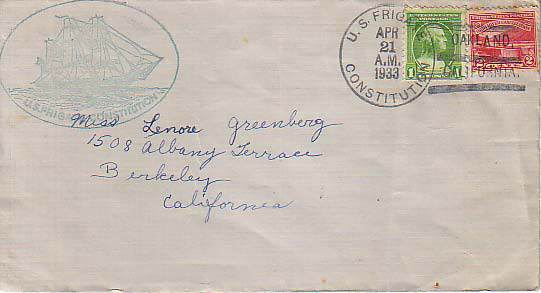 U.S. FRIGATE CONSTITUTION
U.S. FRIGATE
APR
21
A.M.
1933
CONSTITUTION
OAKLAND,
CALIFORNIA.
1
2
Miss Lenore Greenberg
1508 Albany Terrace
Berkeley
California